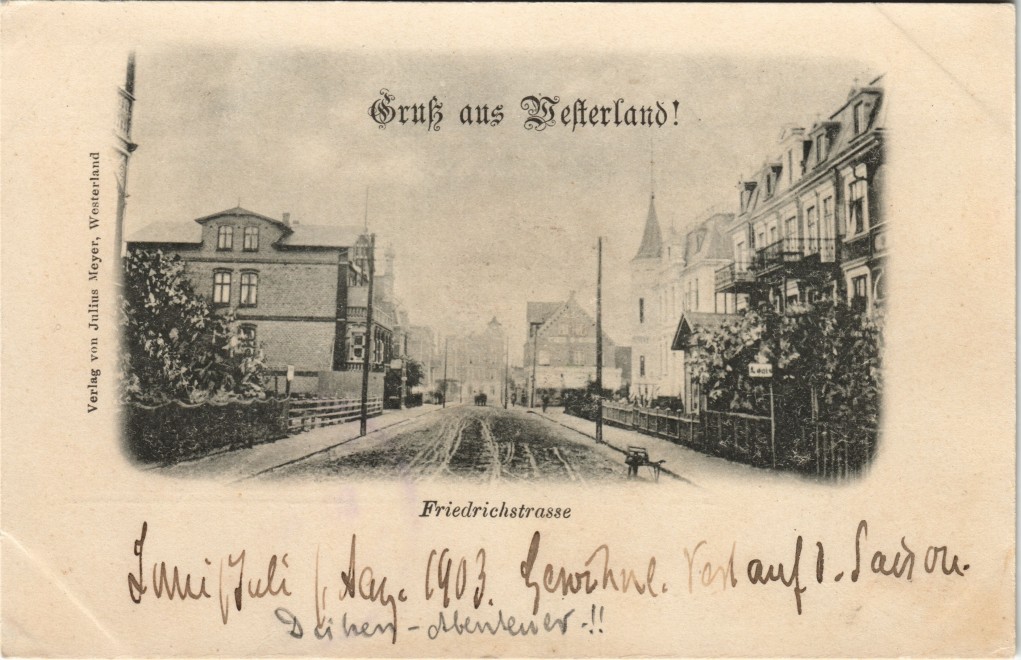 Gruß aus Westerland!
Verlag von Julius Meyer, Westerland
Friedrichstrasse
Juni/Juli /, Aug. 1903. Gewöhnl. Verlauf d. Saison.
Abenteuer-!!